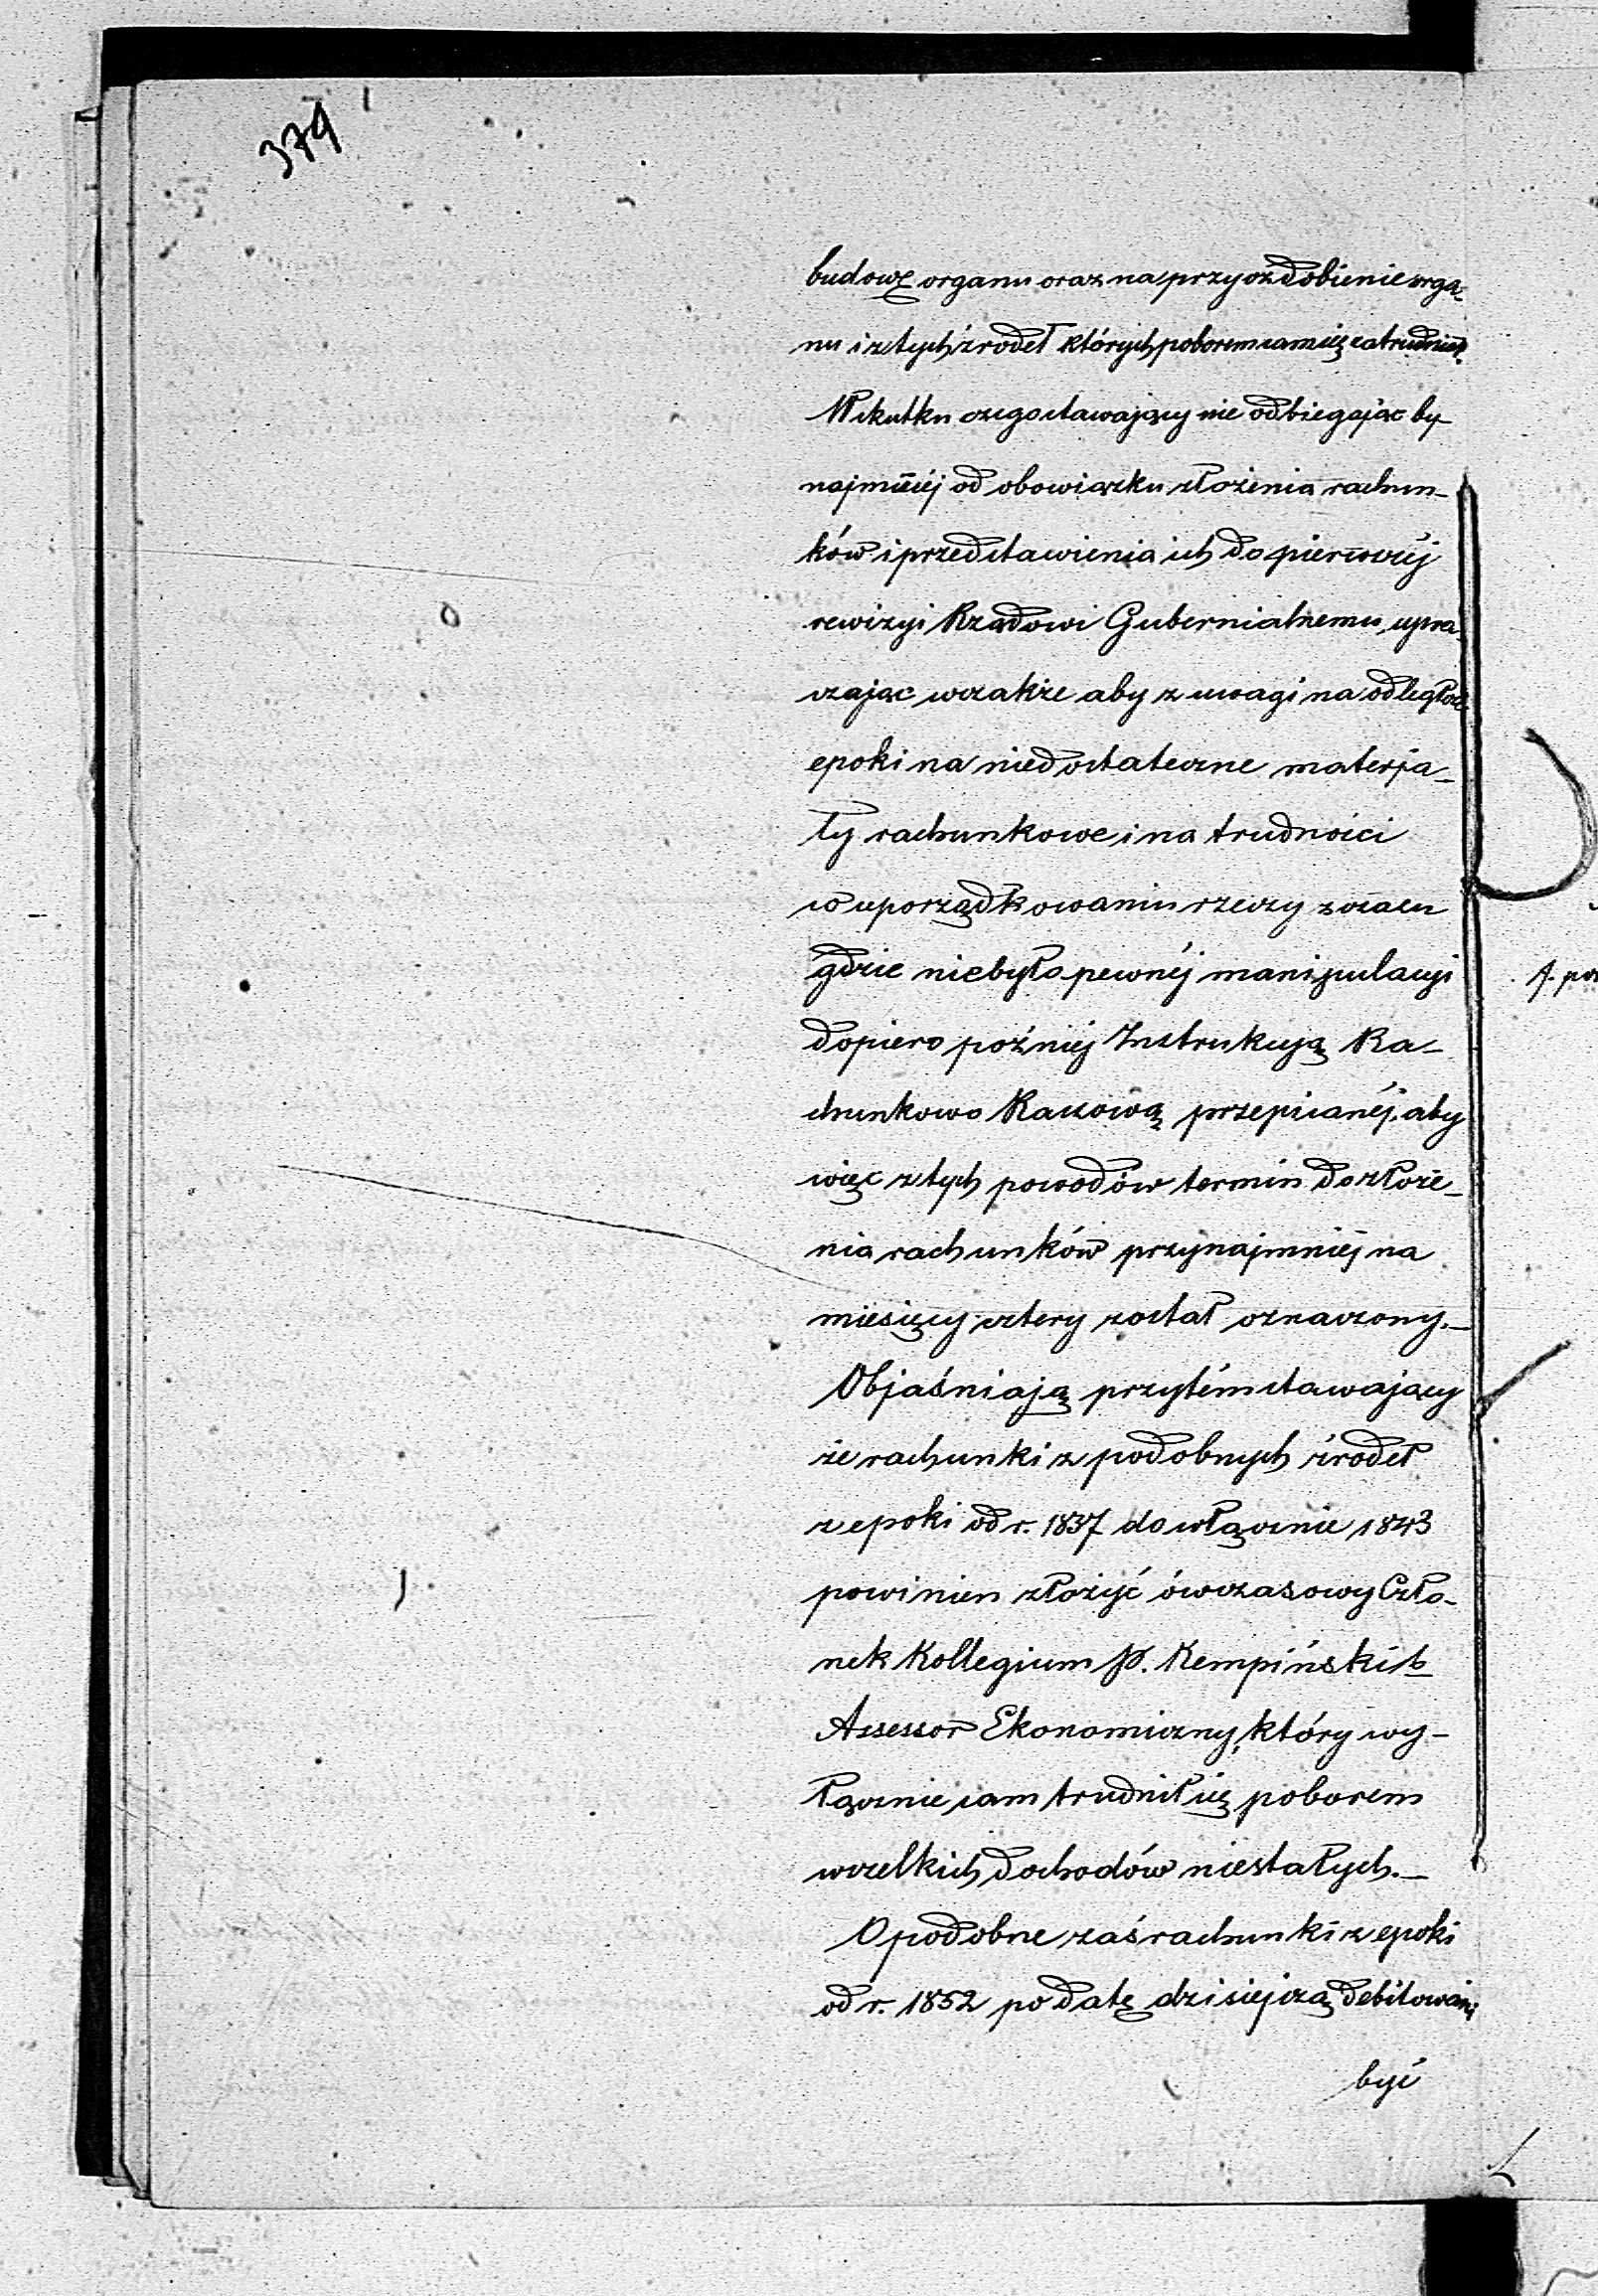 374
budowę organu oraz na przyozdobienie orga-
nu i z tych źrodeł których poborem sam się zatrudniał.
W skutku czego stawający nie odbiegając by-
najmniéj od obowiązku złożenia rachun-
ków i przedstawienia ich do pierwszéj
rewizyi Rządowi Gubernialnemu, upra-
szając wszakże aby z uwagi na odległość
epoki na niedostateczne materja-
ły rachunkowe i na trudności
w uporządkowaniu rzeczy z czasu
gdzie niebyło pewnéj manipulacyi
dopiero poźniéj Instrukcyą Ra-
chunkowo Kassową przepisanéj, aby
więc z tych powodów termin do złoże-
nia rachunków przynajmniéj na
miesięcy cztery został oznaczony.—
Objaśniają przytém stawający
że rachunki z podobnych źrodeł
z epoki od r. 1837 do włącznie 1843
powinien złożyć ówczasowy Czło-
nek Kollegium P. Kempiński b
Assessor Ekonomiczny, który wy-
łącznie sam trudnił się poborem
wszelkich dochodów niestałych.—
O podobne zaś rachunki z epoki
od r. 1852 po datę dzisiejszą debitowani
być